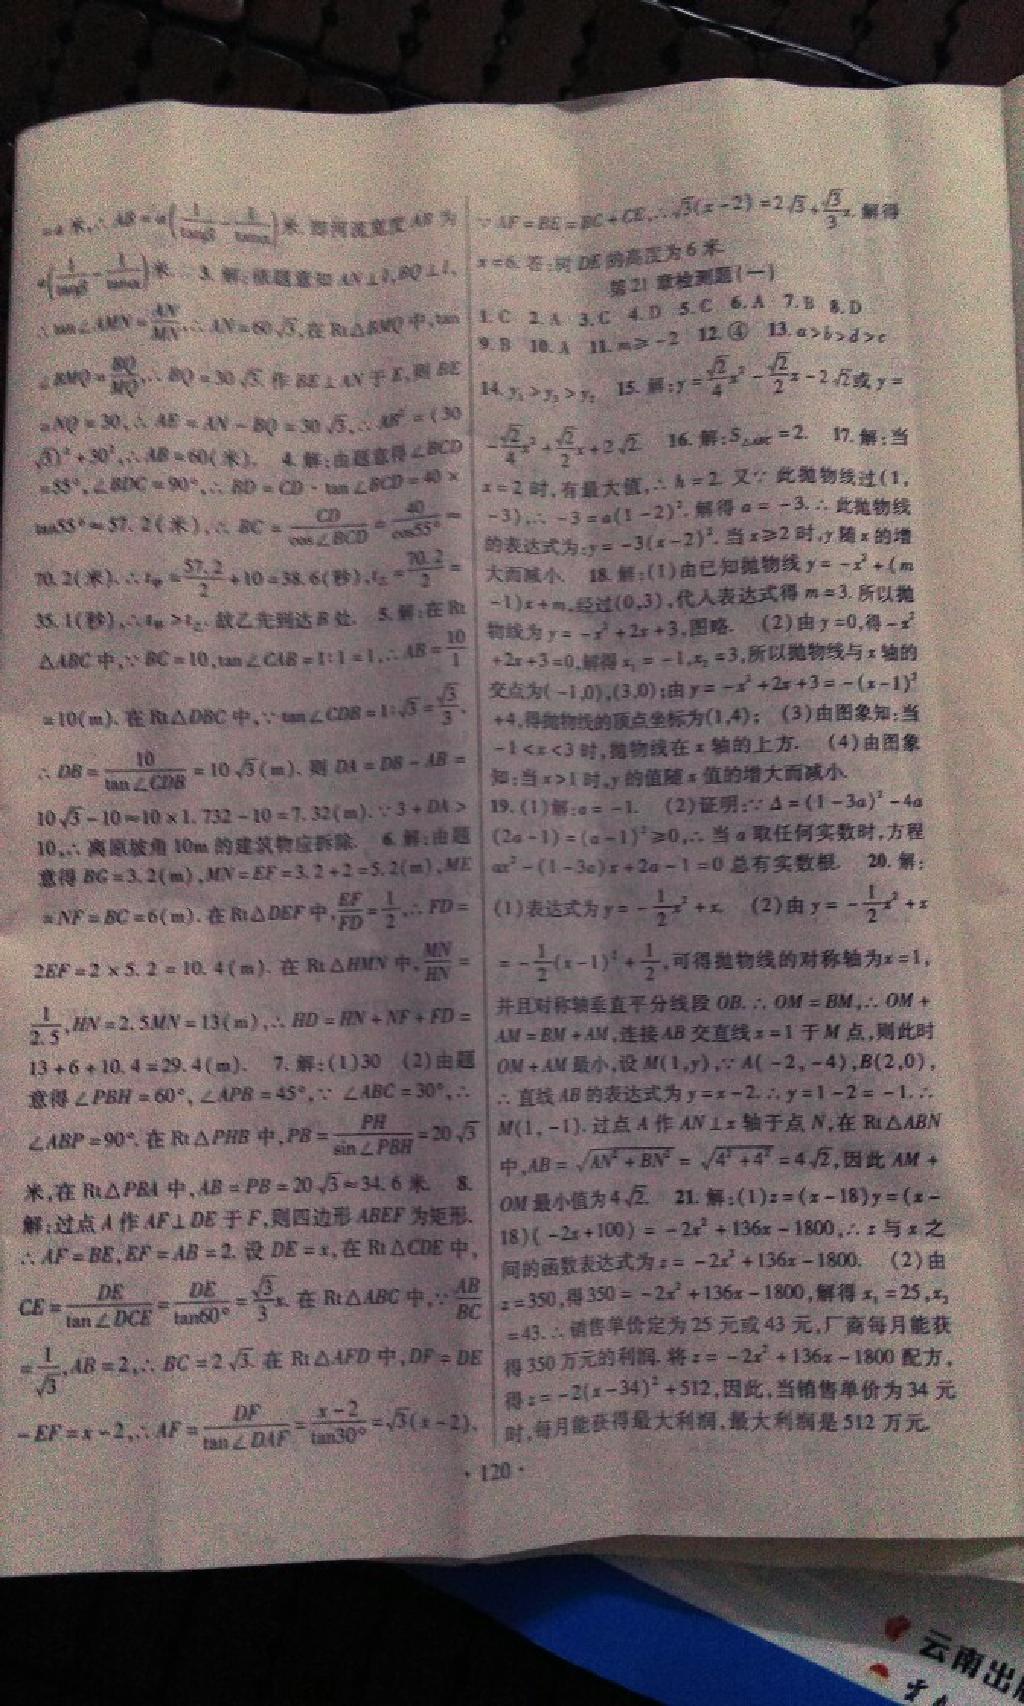 =a米,∴AB=a(1/tanβ-1/tanα)米.即河流宽度AB为
a(1/tanβ-1/tanα)米. 3.解:依题意知AN⊥l,BQ⊥l,
∴tan∠AMN=AN/MN,∴AN=60√3,在Rt△BMQ中,tan
∠BMQ=BQ/MQ,∴BQ=30√3.作BE⊥AN于E,则BE
=NQ=30,∴AE=AN-BQ=30√3,∴AB²=(30
√3)²+30²,∴AB=60(米). 4.解:由题意得∠BCD
=55°,∠BDC=90°,∴BD=CD·tan∠BCD=40×
tan55°≈57.2(米),∴BC=CD/cos∠BCD=40/cos55°≈
70.2(米).∴t甲=57.2/2+10=38.6(秒),t乙=70.2/2=
35.1(秒),∴t甲>t乙.故乙先到达B处. 5.解:在Rt
△ABC中,∵BC=10,tan∠CAB=1:1=1,∴AB=10/1
=10(m).在Rt△DBC中,∵tan∠CDB=1:√3=√3/3,
∴DB=10/tan∠CDB=10√3(m).则DA=DB-AB=
10√3-10≈10×1.732-10=7.32(m).∵3+DA>
10,∴离原坡角10m的建筑物应拆除. 6.解:由题
意得BG=3.2(m),MN=EF=3.2+2=5.2(m),ME
=NF=BC=6(m).在Rt△DEF中,EF/FD=1/2,∴FD=
2EF=2×5.2=10.4(m).在Rt△HMN中,MN/HN=
1/2.5,HN=2.5MN=13(m),∴HD=HN+NF+FD=
13+6+10.4=29.4(m). 7.解:(1)30 (2)由题
意得∠PBH=60°,∠APB=45°,∵∠ABC=30°,∴
∠ABP=90°.在Rt△PHB中,PB=PH/sin∠PBH=20√3
米,在Rt△PBA中,AB=PB=20√3≈34.6米. 8.
解:过点A作AF⊥DE于F,则四边形ABEF为矩形.
∴AF=BE,EF=AB=2.设DE=x,在Rt△CDE中,
CE=DE/tan∠DCE=DE/tan60°=√3/3x.在Rt△ABC中,∵AB/BC
=1/√3,AB=2,∴BC=2√3.在Rt△AFD中,DF=DE
-EF=x-2,∴AF=DF/tan∠DAF=x-2/tan30°=√3(x-2).
∵AF=BE=BC+CE,∴√3(x-2)=2√3+√3/3x.解得
x=6.答:树DE的高度为6米.
第21章检测题(一)
1.C 2.A 3.C 4.D 5.C 6.A 7.B 8.D
9.B 10.A 11.m≥-2 12.④ 13.a>b>d>c
14.y₁>y₃>y₂ 15.解:y=√2/4x²-√2/2x-2√2或y=
-√2/4x²+√2/2x+2√2. 16.解:S△ABC=2. 17.解:当
x=2时,有最大值,∴h=2.又∵此抛物线过(1,
-3),∴-3=a(1-2)².解得a=-3.∴此抛物线
的表达式为:y=-3(x-2)².当x≥2时,y随x的增
大而减小. 18.解:(1)由已知抛物线y=-x²+(m
-1)x+m,经过(0,3),代入表达式得m=3.所以抛
物线为y=-x²+2x+3,图略. (2)由y=0,得-x²
+2x+3=0,解得x₁=-1,x₂=3,所以抛物线与x轴的
交点为(-1,0),(3,0);由y=-x²+2x+3=-(x-1)²
+4,得抛物线的顶点坐标为(1,4); (3)由图象知:当
-1<x<3时,抛物线在x轴的上方. (4)由图象
知:当x>1时,y的值随x值的增大而减小.
19.(1)解:a=-1. (2)证明:∵Δ=(1-3a)²-4a
(2a-1)=(a-1)²≥0,∴当a取任何实数时,方程
ax²-(1-3a)x+2a-1=0总有实数根. 20.解:
(1)表达式为y=-1/2x²+x. (2)由y=-1/2x²+x
=-1/2(x-1)²+1/2,可得抛物线的对称轴为x=1,
并且对称轴垂直平分线段OB.∴OM=BM,∴OM+
AM=BM+AM,连接AB交直线x=1于M点,则此时
OM+AM最小,设M(1,y),∵A(-2,-4),B(2,0),
∴直线AB的表达式为y=x-2.∴y=1-2=-1.∴
M(1,-1).过点A作AN⊥x轴于点N,在Rt△ABN
中,AB=√(AN²+BN²)=√(4²+4²)=4√2,因此AM+
OM最小值为4√2. 21.解:(1)z=(x-18)y=(x-
18)(-2x+100)=-2x²+136x-1800,∴z与x之
间的函数表达式为z=-2x²+136x-1800. (2)由
z=350,得350=-2x²+136x-1800,解得x₁=25,x₂
=43.∴销售单价定为25元或43元,厂商每月能获
得350万元的利润.将z=-2x²+136x-1800配方,
得z=-2(x-34)²+512,因此,当销售单价为34元
时,每月能获得最大利润,最大利润是512万元.
·120·
云南出